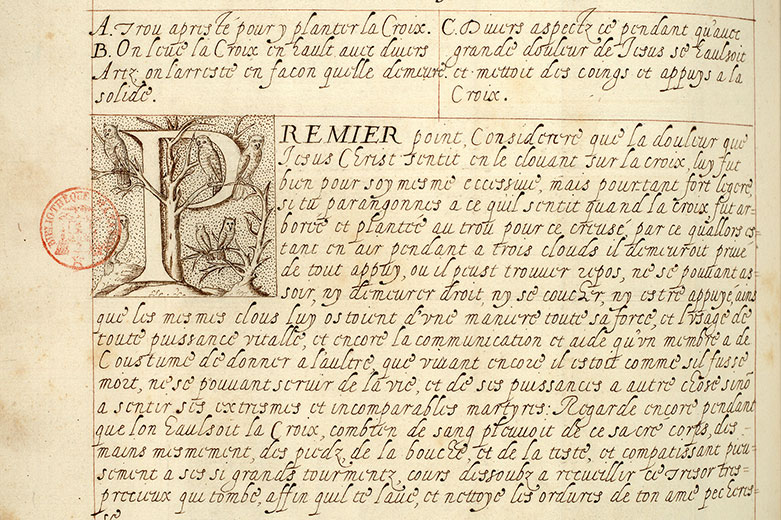 A. Trou apresté pour y planter la Croix.
B. On leue la Croix en hault auec diuers
Artz, on larreste en facon quelle demeure
solide.
C. Diuers aspectz ce pendant qu'auec
grande douleur de Jesus se haulsoit
et mettoit des coings et appuys a la
Croix.
PREMIER point, Considerere que la douleur que
Jesus Christ sentit en le clouant sur la croix, luy fut
bien pour soy mesme excessiue, mais pourtant fort legere,
si tu parangonnes a ce quil sentit quand la Croix fut ar-
boree et plantee au trou pour ce creuse, par ce quallors es-
tant en air pendant a trois clouds il demeuroit priué
de tout appuy, ou il peust trouuer repos, ne se pouuant as-
soir, ny demeurer droit, ny se coucher, ny estre appuyé, ains
que les mesmes clous luy ostoient d'vne maniere toute sa force, et l'vsage de
toute puissance vitalle, et encore la communication et aide qu'vn membre a de
Coustume de donner a laultre, que viuant encore il estoit comme sil fusse
mort, ne se pouuant seruir de la vie, et de ses puissances a autre chose sinõ
a sentir ses extresmes et incomparables martyres: Regarde encore pendant
que lon haulsoit la Croix, combien de sang pleuuoit de ce sacre corps, des
mains mesmement, des piedz, de la bouche, et de la teste, et compatissant pieu-
sement a ses si grands tourmentz, cours dessoubz a recueillir ce tresor tres-
precieux qui tombe, affin quil te laue, et nettoye les ordures de ton ame pecheres-
se
BIBLIOTHÈQUE